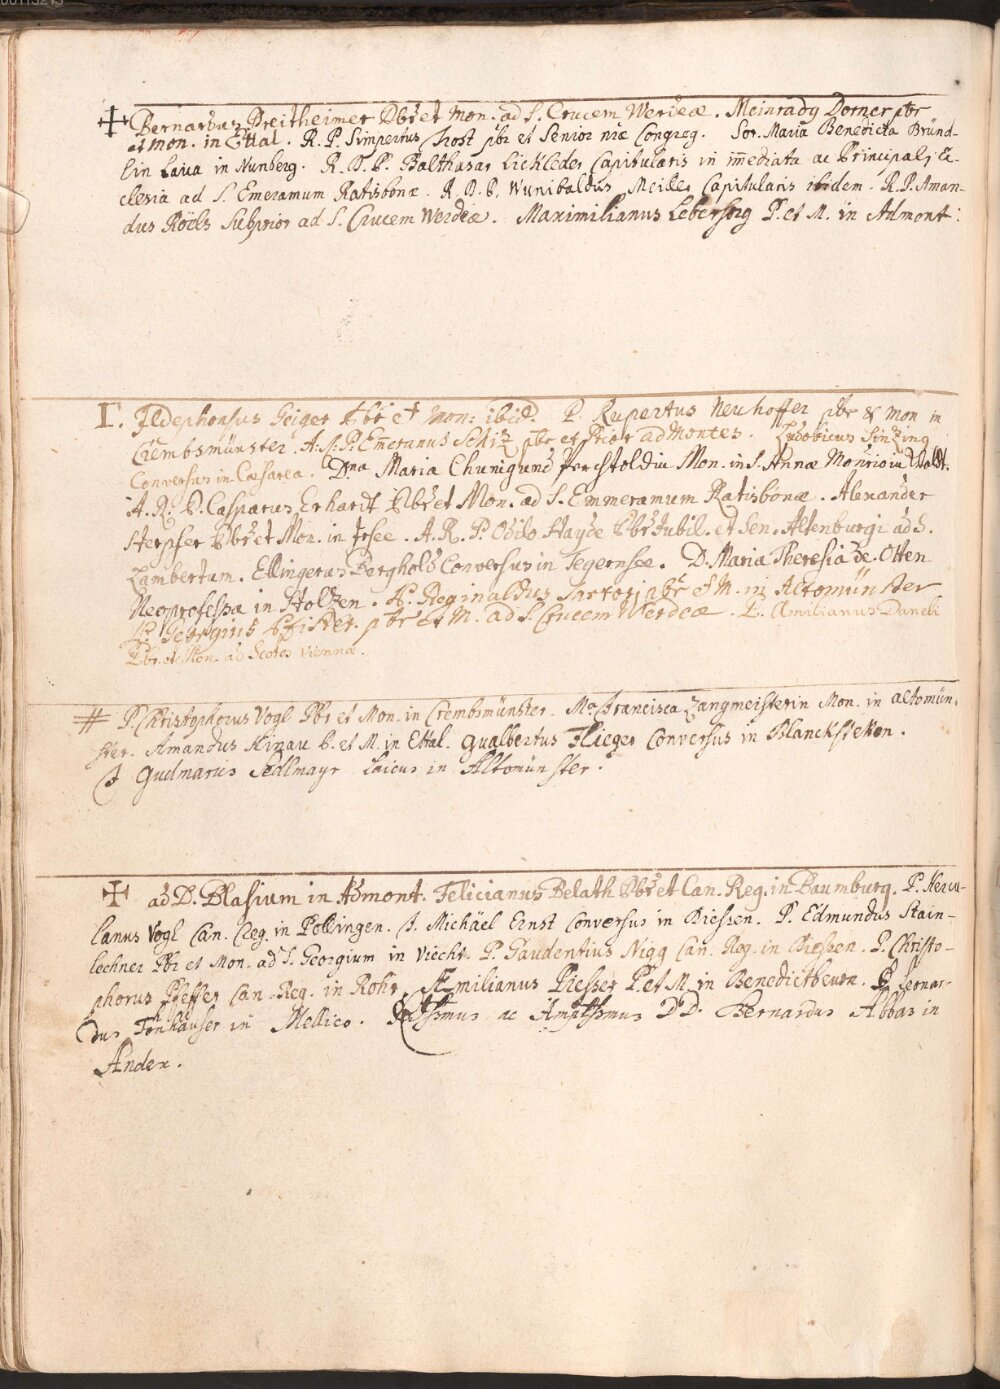 ✠ Bernardus Preitheimer Pbr et Mon. ad S. Crucem Werdeæ. Meinradg Dorner pbr
et Mon. in Ettal. R. P. Simpertus Jost pbr et Senior nræ Congreg. Sor. Maria Benedicta Bründ-
lin Laica in Nunberg. R. D. P. Balthasar Lickleder Capitularis in im̅ediata ac Principali Ec-
clesia ad S. Emeramum Ratisbonæ. R. D. P. Wunibaldus Meiller Capitularis ibidem. R. P. Aman-
dus Röckl Subprior ad S. Crucem Werdeæ. Maximilianus Lebersorg P. et M. in Admont:
Γ. Ildephonsus Geiger Pbr et Mon: ibid. P. Rupertus Neuhoffer pbr & Mon in
Crembsmünster. A. R. P. Em̅eranus Schiz pbr et Prior ad Montes. Ludovicus Sinzing
Conversus in Cæsarea. Dna Maria Chunigund Mon. in S. Annæ
A. R. P. Casparus Erhardt Pbr et Mon. ad S. Emmeramum Ratisbonæ. Alexander
Herpfer Pbr et Mon. in Irsee. A. R. P. Odilo Hayde Pbr Jubil. et Sen. Altenburgi ad S.
Lambertum. Ellingerus Berghold Conversus in Tegernsee. D. Maria Theresia de Otten
Neoprofessa in Holtzen. P. Reginaldus Sartori pbr et M. in Altomünster
P. Georgius Pfister pbr et M. ad S. Crucem Werdeæ. P. Æmilianus Daneli
Pbr. et Mon. ad Scotos Viennæ.
# P. Christophorus Vogl Pbr et Mon. in Crembsmünster. Ma Francisca Zangmeisterin Mon. in Altomün-
ster. Amandus Hinau P. et M. in Ettal. Gualbertus Flieger Conversus in Blanckstetten.
F. Gudmarus Sedlmayr Laicus in Altomünster.
✠ ad D. Blasium in Admont. Felicianus Belath Pbr et Can. Reg. in Baumburg. P. Hercu-
lanus Vogl Can. Reg. in Pollingen. F. Michäel Ernst Conversus in Diessen. P. Edmundus Stain-
lechner Pbr et Mon. ad S. Georgium in Viecht. P. Gaudentius Nigg Can. Reg. in Diessen. P. Christo-
phorus Pfeffer Can. Reg. in Rohr. Æmilianus Piesser P. et M. in Benedictbeurn. P. Leonar-
dus Fonhauser in Mellico. ac Ampliss̅mus D D. Bernardus Abbas in
Andex.